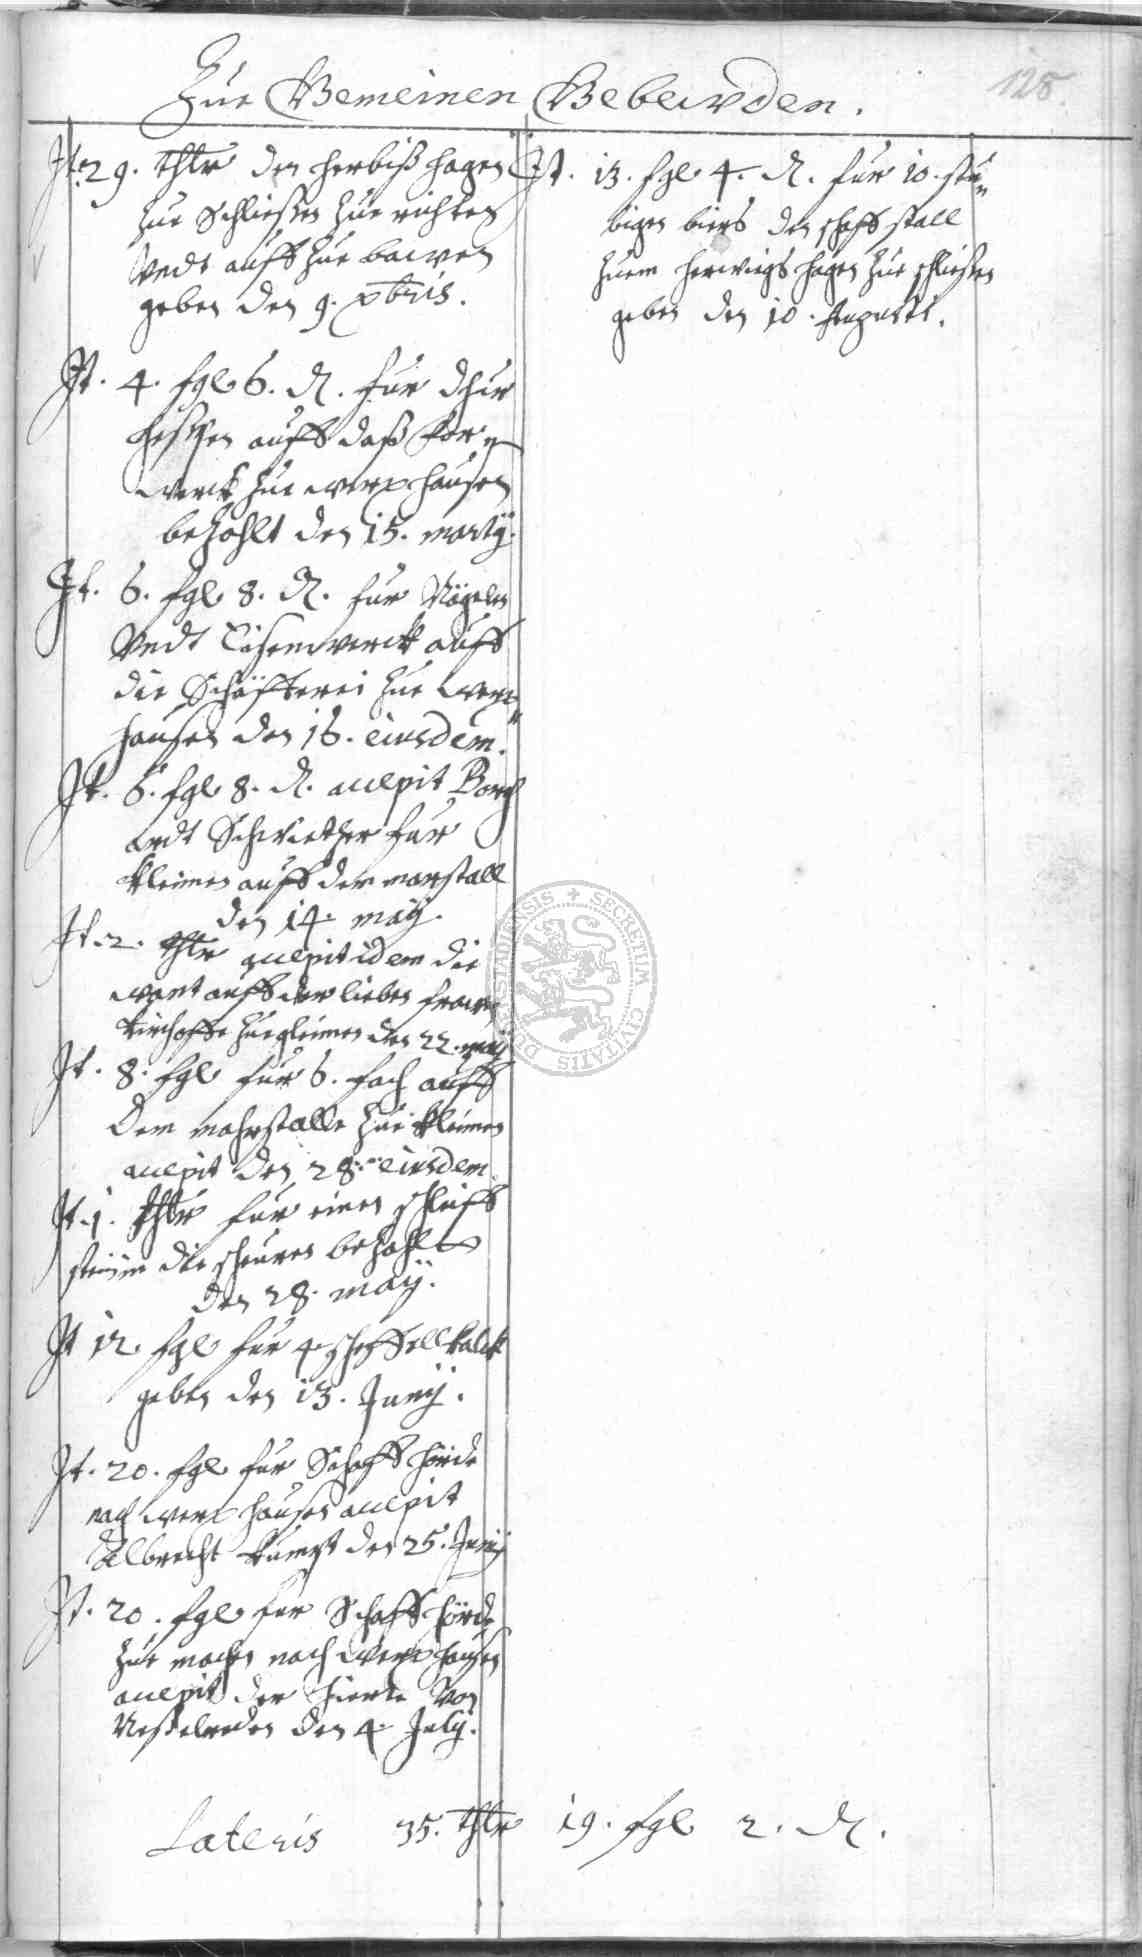 Zue Gemeinen Gebewden.
128.
It. 29. thlr den herbiß hagen
zue Schliessen zue richten
Vndt auff zue bawen
geben den 9. xbris.
It. 4. fgl 6. d. fur
auff daß Vor
werck zue werxhausen
bezahlt den 15. martij.
It. 6. fgl 8. d. fur Nägelen
Vndt Eisenwerck auff
die Schäfferei zue werx
hausen den 16. eiusdem.
It. 6. fgl 8. d. accepit Borch
ardt Schwether fur
kleimen auff dem marstall
den 14. maij.
It. 2. thlr accepit idem die
want auff der lieben frawen
kirchoffe zue kleimen den 22. maij
It. 8. fgl fur 6. fach auff
Dem mahrstalle zue kleimen
accepit den 28. eiusdem
It. 1. thlr fur einen schleiff
stein in die scheuren bezahlt
den 28. maij.
It 12. fgl fur 4 scheffell kalck
geben den 13. Junij.
It. 20. fgl fur Schaff hörde
nach werxhausen accepit
Albrecht den 25. Junij
It. 20. fgl fur Schaff hörde
zue machen nach werxhausen
accepit der hierte Von
Neßelreden den 4 Julij.
It. 13. fgl 4. d. fur 10. stu
bigen biers den schaff stall
zuem herwigshagen zue schliessen
geben den 10. Augusti.
Lateris 35. thlr 19. fgl 2. d.
SECRETUM CIVITATIS DUDERSTADIENSIS